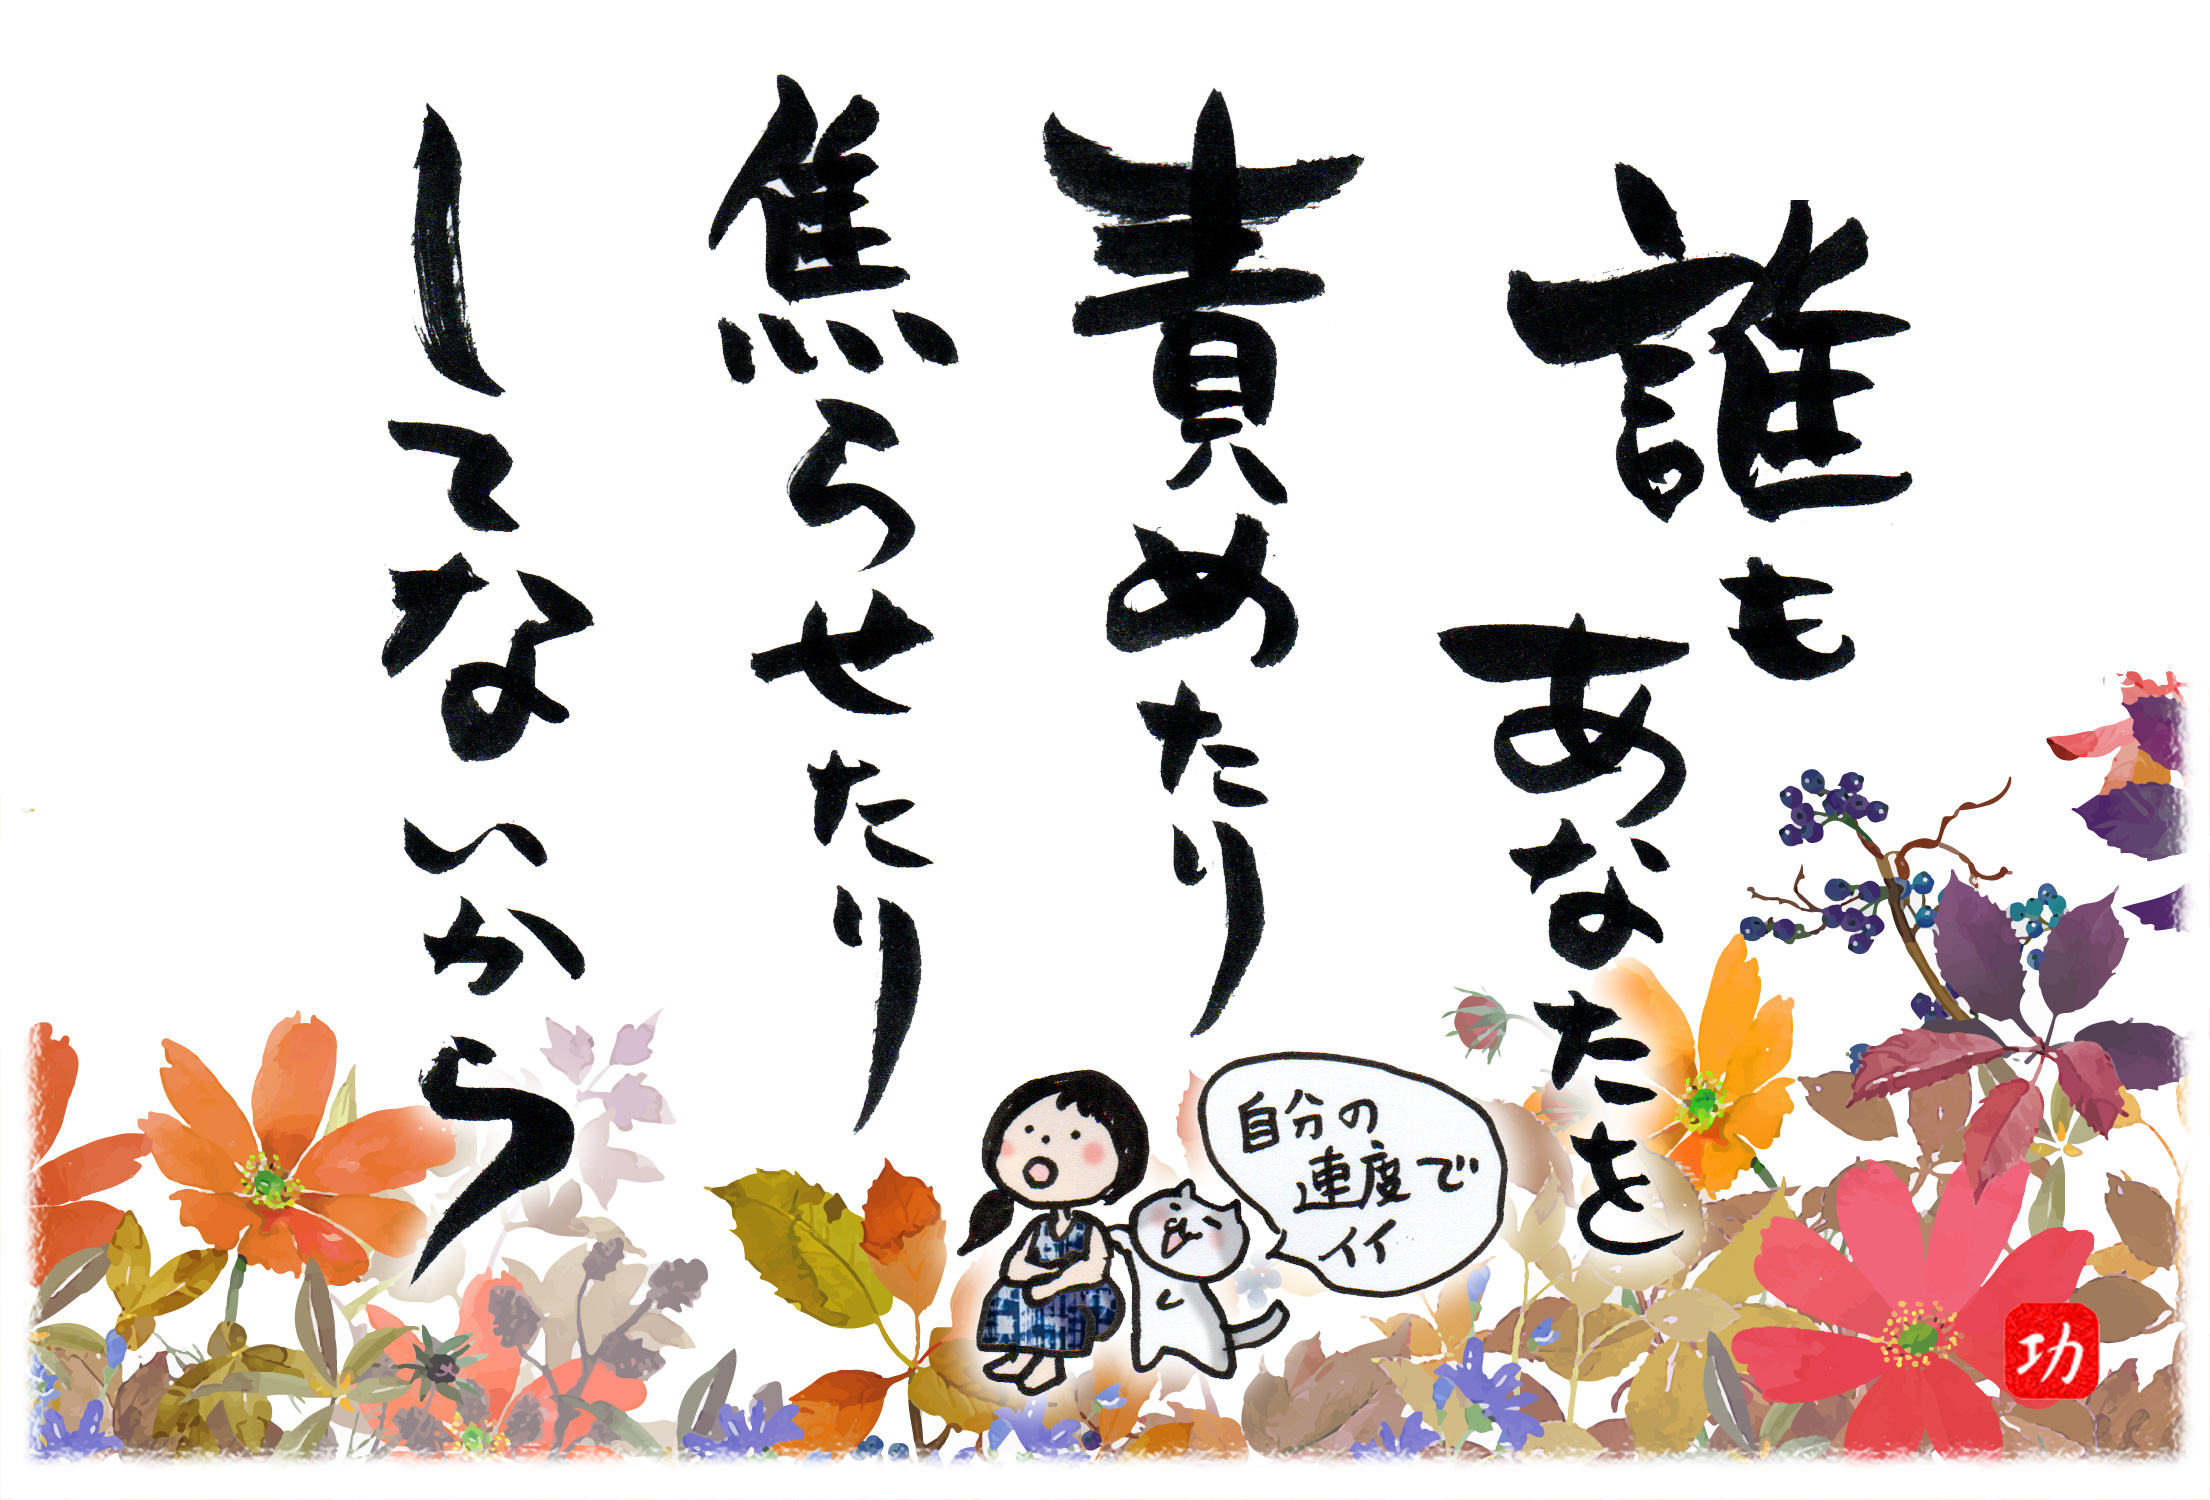 誰もあなたを
責めたり
焦らせたり
してないから
自分の
速度で
イイ
功